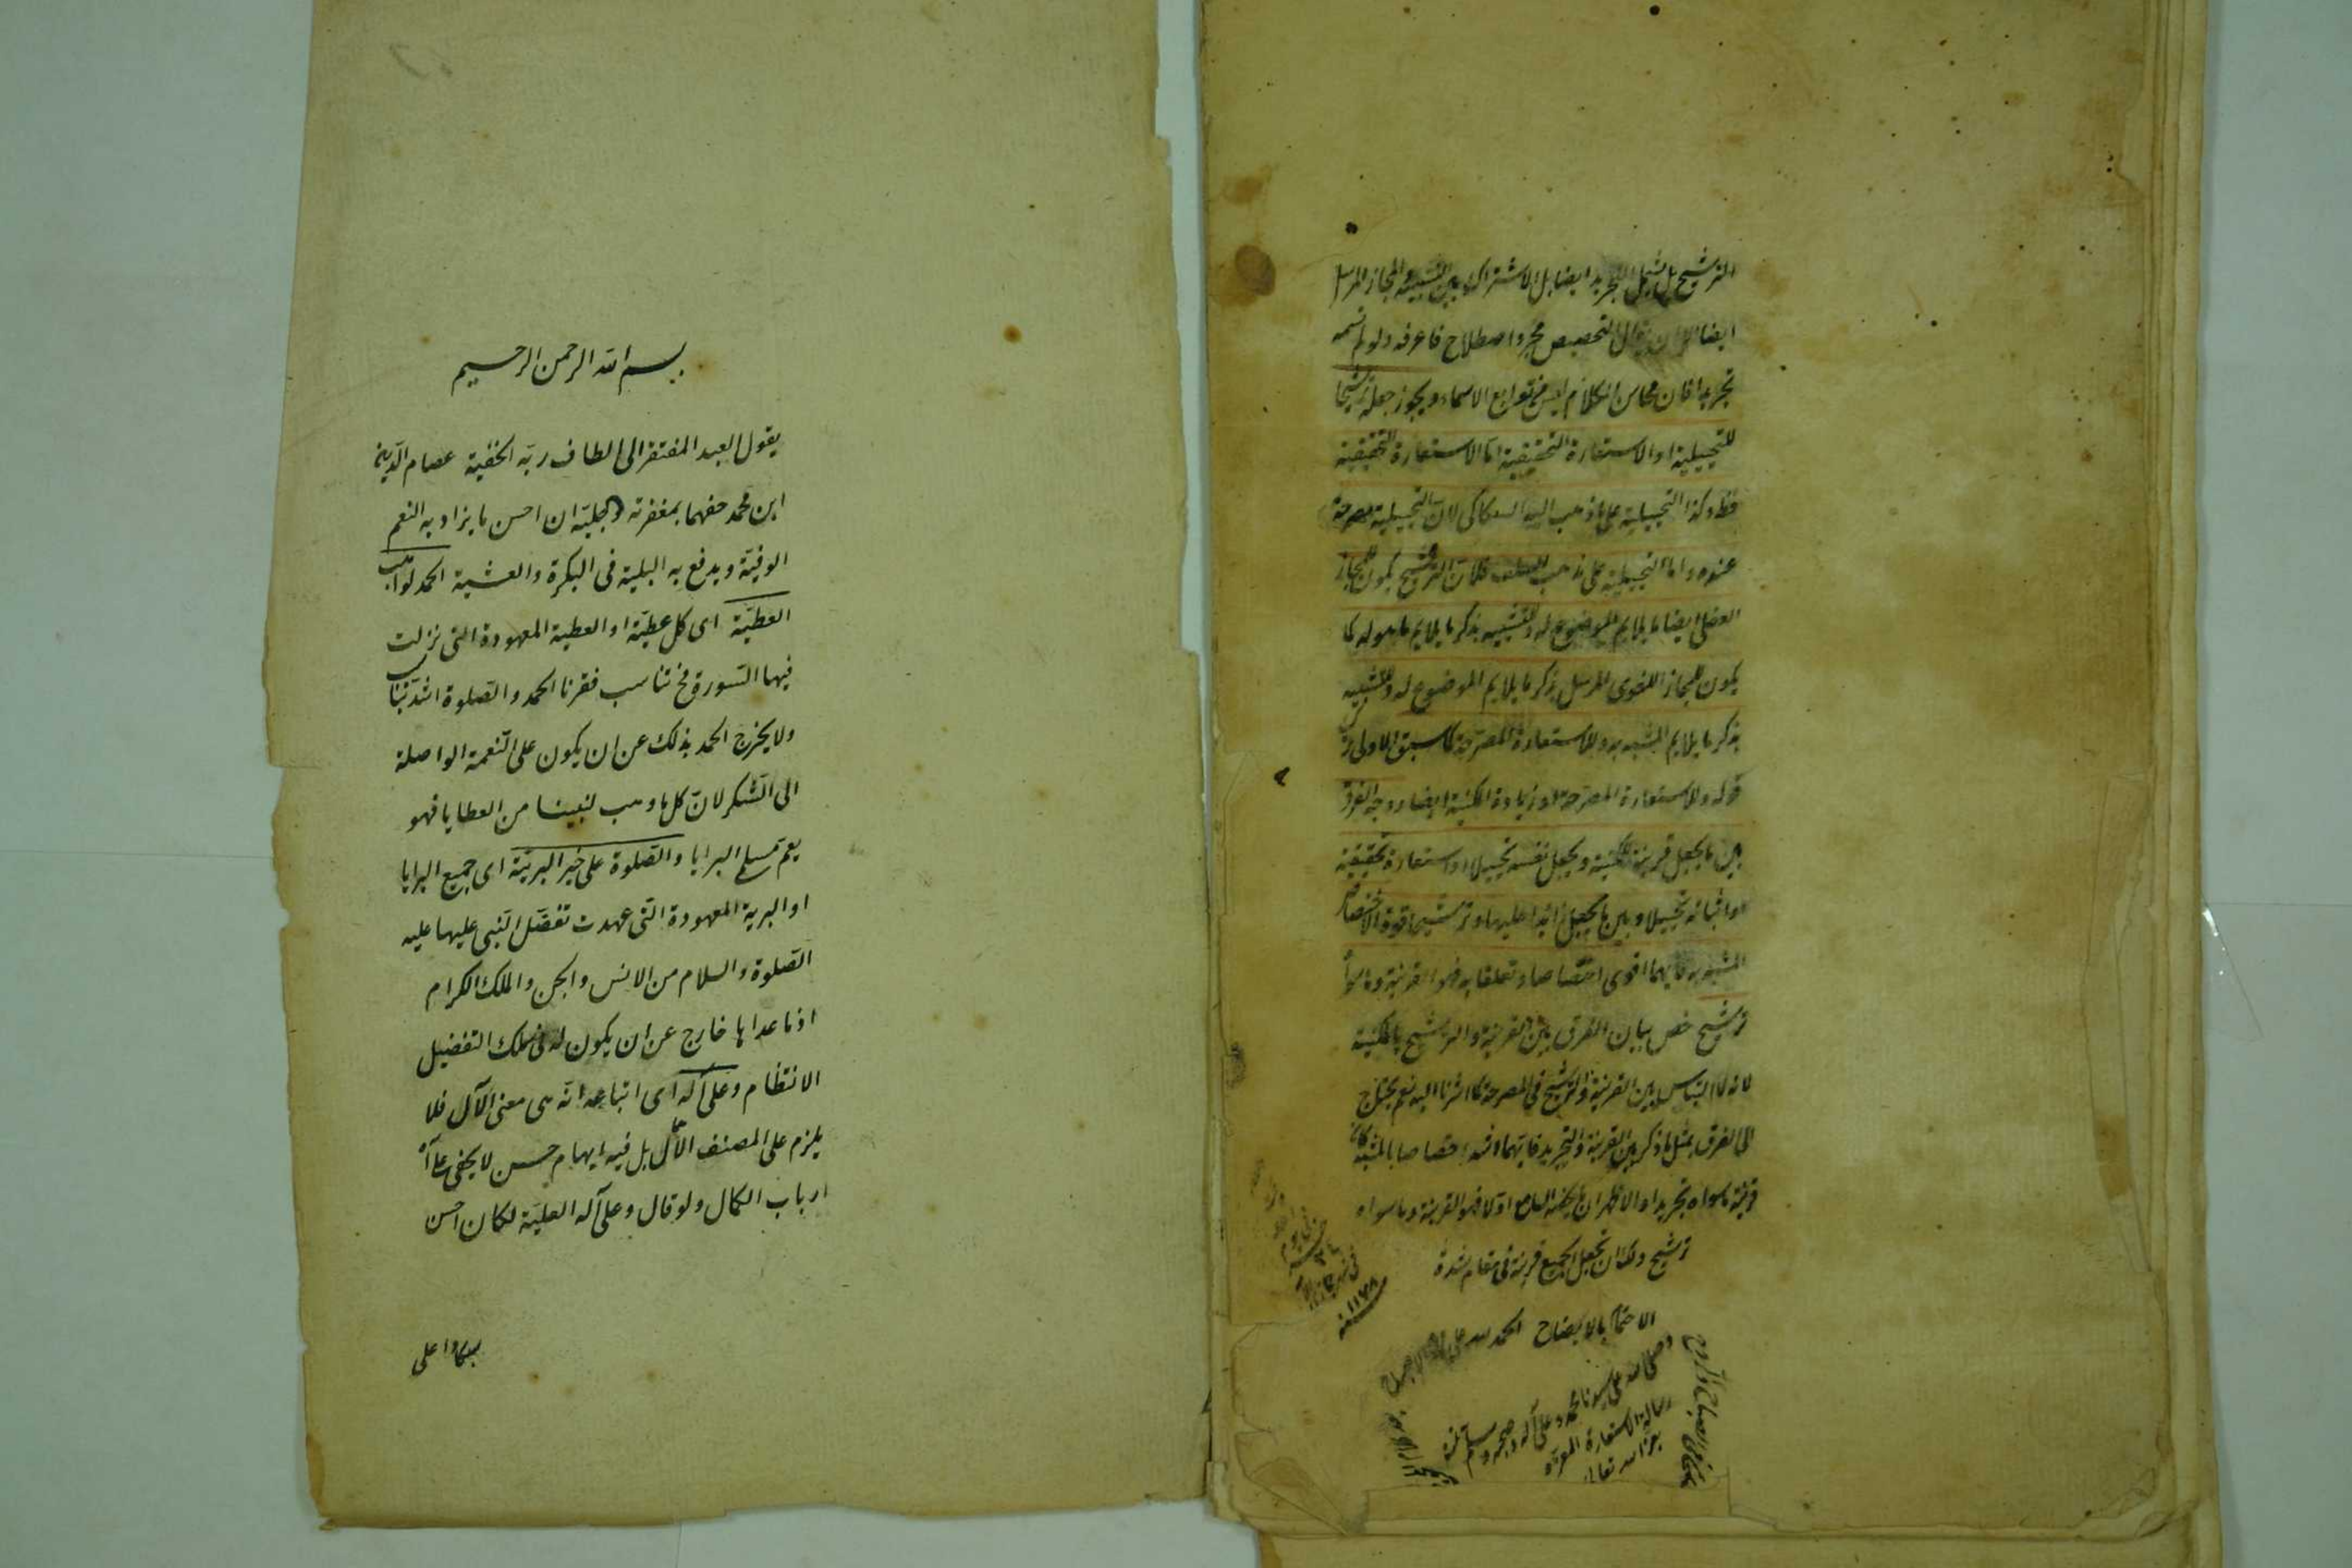 الترشيح بل يشمل التجريد ايضا بل الاشتراك بين التشبيه والمجاز المرسل
ايضا الا ان يقال التخصيص مجرد اصطلاح فاعرفه ولو لم نسمه
تجريدا فان محاسن الكلام ليس من توابع الاسماء ويجوز جعله ترشيحا
للتخييلية او الاستعارة التحقيقية اما الاستعارة التحقيقية
فظ وكذا التخييلية على ما ذهب اليه السكاكى لان التخييلية مصرحة
عنده واما التخييلية على مذهب السلف فلان الترشيح يكون للمجاز
العقلى ايضا بما يلايم الموضوع له وللتشبيه بذكر ما يلايم ما هو له كما
يكون للمجاز اللغوى المرسل بذكر ما يلايم الموضوع له وللتشبيه
بذكر ما يلايم المشبه به وللاستعارة المصرحة كما سبق الاولى
قوله وللاستعارة المصرحة او زيادة المكنية ايضا ووجه الفرق
بين ما يجعل قرينة للمكنية ويجعل نفسه تخييلا او استعارة تحقيقية
او اثباته تخييلا وبين ما يجعل زائدا عليها وترشيحا قوة الاختصاص
بالمشبه به فايهما اقوى اختصاصا وتعلقا به فهو القرينة وما سواه
ترشيح خص بيان الفرق بين القرينة والترشيح بالمكنية
لانه لا التباس بين القرينة والترشيح فى المصرحة كما اشرنا اليه نعم يحتاج
الى الفرق بمثل ما ذكر بين القرينة والتجريد فايهما اشد اختصاصا بالمشبه كان
قرينة وما سواه تجريدا والاظهر ان ما يحضر السامع اولا فهو القرينة وما سواه
ترشيح ولك ان تجعل الجميع قرينة فى مقام شدة
الاهتمام بالايضاح الحمد لله على
وصلى الله على سيدنا محمد وعلى آله وصحبه وسلم تمت
رسالة الاستعارة
بعون الله تعالى
١١٦٨ سنه
بسم الله الرحمن الرحيم
يقول العبد المفتقر الى الطاف ربه الخفية عصام الدين
ابن محمد حفهما بمغفرته الجلية ان احسن ما يزاد به النعم
الوفية ويدفع به البلية فى البكرة والعشية الحمد لواهب
العطية اى كل عطية او العطية المعهودة التى نزلت
فيها السورة فح تناسب فقرتا الحمد والصلوة اشد تناسب
ولا يخرج الحمد بذلك عن ان يكون على النعمة الواصلة
الى الشكر لان كل ما وهب لنبينا من العطايا فهو
يعم جميع البرايا والصلوة على خير البرية اى جميع البرايا
او البرية المعهودة التى عهدت تفضل النبى عليها عليه
الصلوة والسلام من الانس والجن والملك الكرام
اذ ما عداها خارج عن ان يكون له فى سلك التفضيل
الانتظام وعلى آله اى اتباعه انه هى معنى الآل فلا
يلزم على المصنف الاهمال بل فيه ايهام حسن لا يخفى على
ارباب الكمال ولو قال وعلى آله العلية لكان احسن